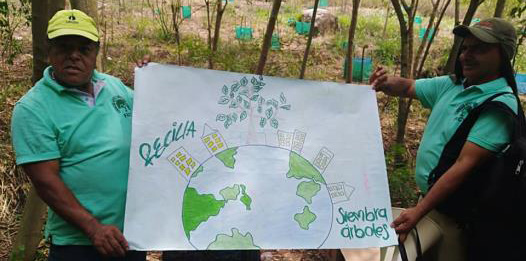 RECICLA
Siembra
árboles